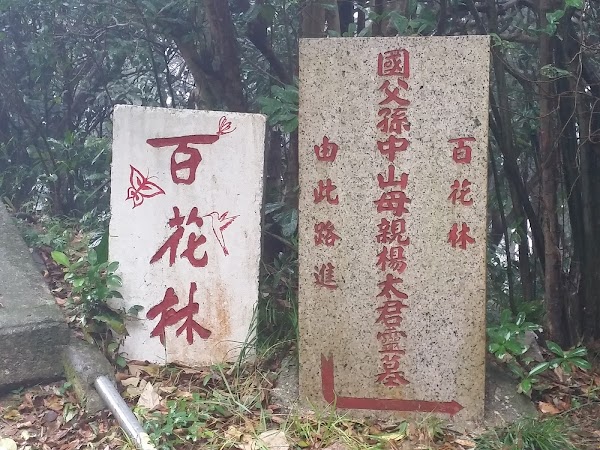 百花林
百花林
國父孫中山母親楊太君靈墓
由此路進